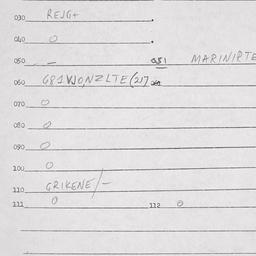 030 REJG+
040 O
050 — 051 MARINIPTE
060 G81WONZLTE(217
070 O
080 O
090 O
100 O
110 GRIKENE/-
111 O 112 O